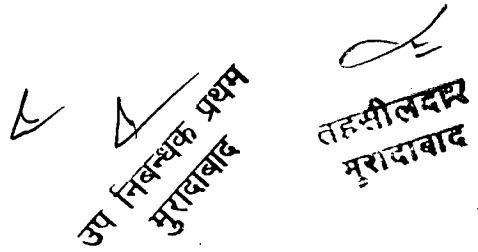 उप निबन्धक प्रथम
मुरादाबाद
तहसीलदार
मुरादाबाद